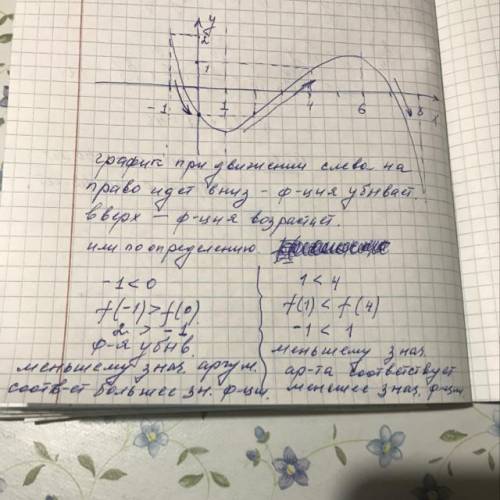 y
2
1
-1 1 4 6 8 x
график при движении слева на
право идет вниз - ф-ция убывает.
вверх — ф-ция возрастает.
или по определению
-1 < 0
f(-1) > f(0)
2 > -1
ф-я убыв.
меньшему знач. аргум.
соотв-ет большее зн. ф-ции.
1 < 4
f(1) < f(4)
-1 < 1
меньшему знач.
ар-та соответствует
меньшее знач. ф-ции